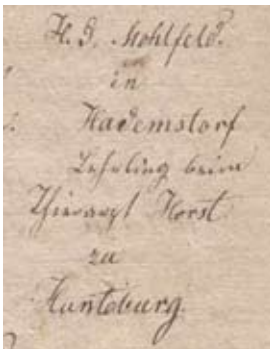 H. G. Mohlfeld.
in
Hademstorf
Lehrling beim
Thierarzt Horst
zu
Hunteburg.